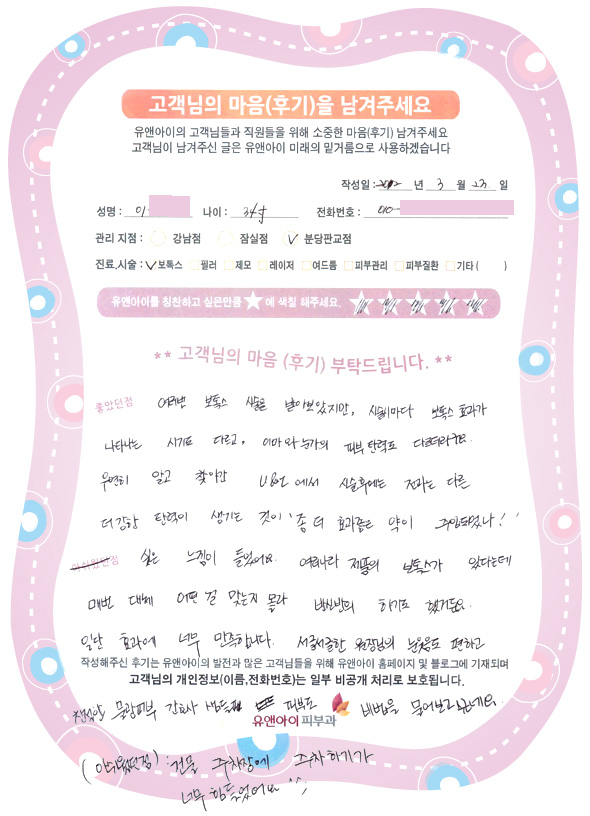 고객님의 마음(후기)을 남겨주세요
유앤아이의 고객님들과 직원들을 위해 소중한 마음(후기) 남겨주세요
고객님이 남겨주신 글은 유앤아이 미래의 밑거름으로 사용하겠습니다
작성일 : 년 3 월 23 일
성명 : 이 나이 : 34 전화번호 : 010-
관리 지점 : 강남점 잠실점 ✓ 분당판교점
진료,시술 : ✓ 보톡스 필러 제모 레이저 여드름 피부관리 피부질환 기타 ( )
유앤아이를 칭찬하고 싶은만큼 ★ 에 색칠 해주세요.
** 고객님의 마음 (후기) 부탁드립니다. **
좋았던점 여러번 보톡스 시술은 받아보았지만, 시술시마다 보톡스 효과가
나타나는 시기도 다르고, 이마와 눈가의 피부탄력도 다르더라구요.
우연히 알고 찾아간 에서 시술후에는 전과는 다른
더 강한 탄력이 생기는 것이 '좀 더 효과좋은 약이 주입되었나!'
아쉬웠던점 싶은 느낌이 들었어요. 여러나라 제품의 보톡스가 있다는데
매번 대체 어떤 걸 맞는지 몰라 하기도 했거든요.
일단 효과에 너무 만족합니다. 서글서글한 원장님의 눈웃음도 편하고
작성해주신 후기는 유앤아이의 발전과 많은 고객님들을 위해 유앤아이 홈페이지 및 블로그에 기재되며
고객님의 개인정보(이름,전화번호)는 일부 비공개 처리로 보호됩니다.
물광피부 간호사 피부도 비법을 물어보고 싶네요.
유앤아이 피부과
(아쉬웠던점) : 건물 주차장에 주차하기가
너무 힘들었어요 ^^;